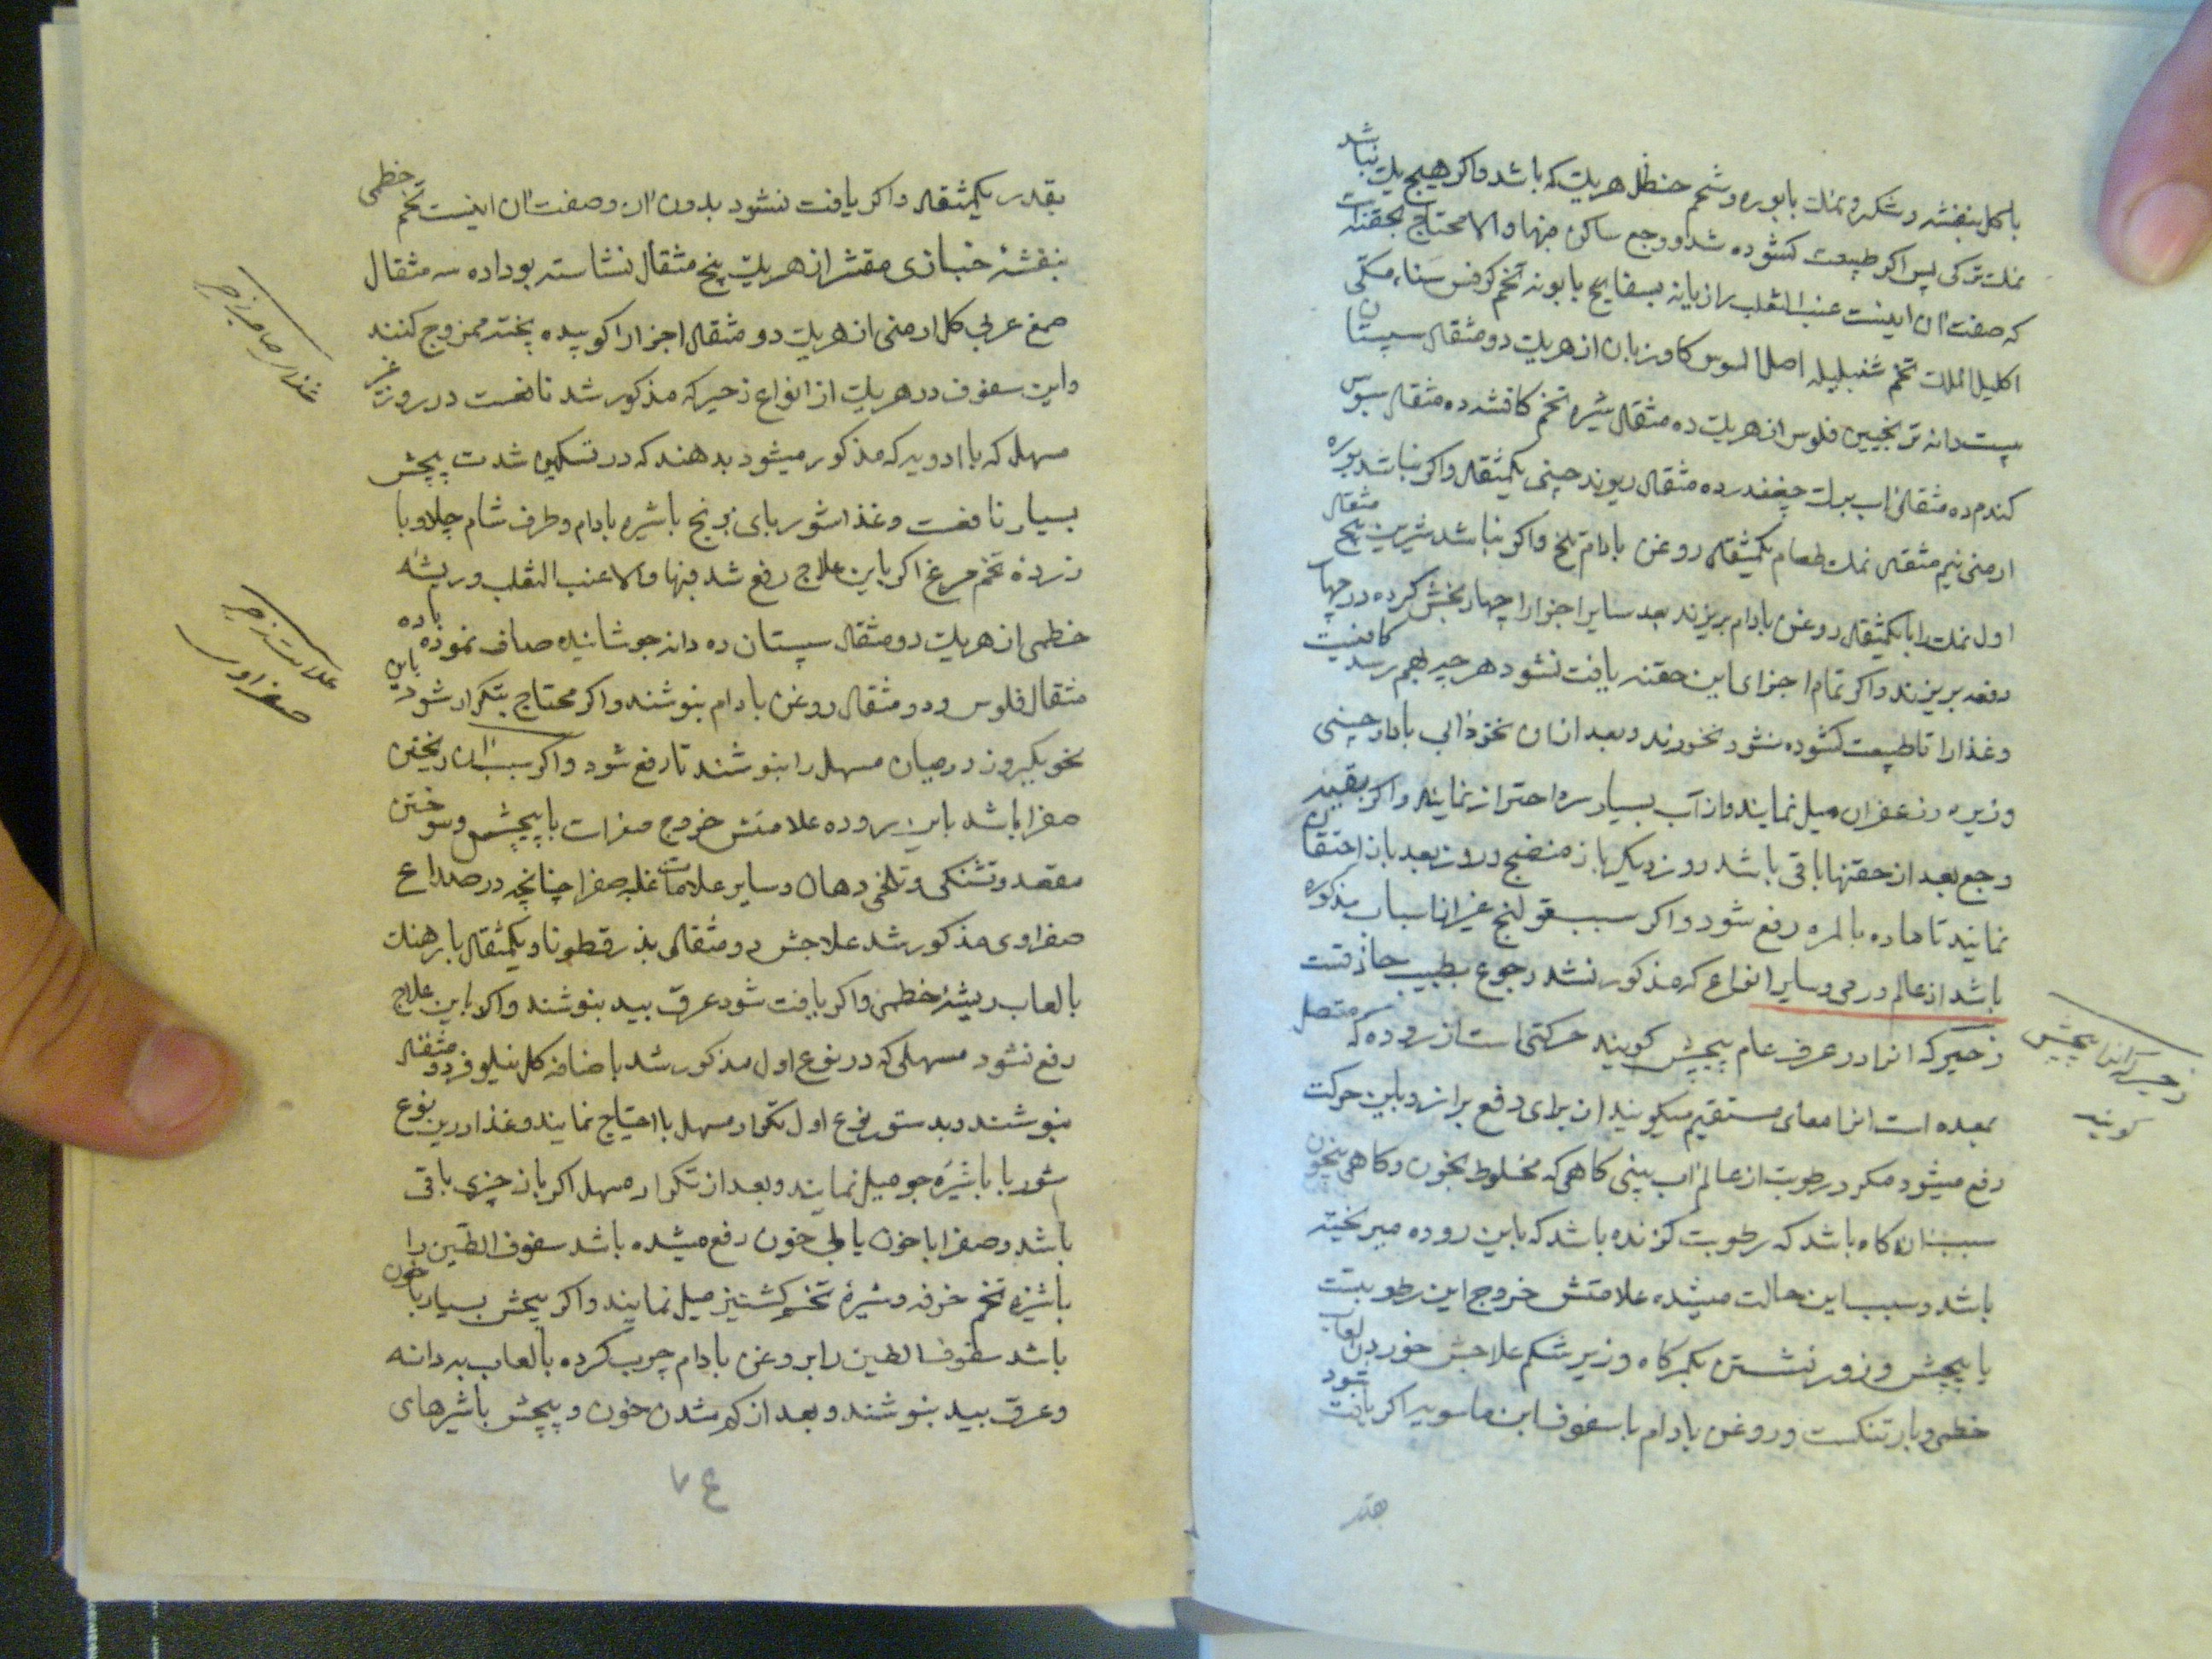 با کل بنفشه و شکر و نمك با بوره و شحم حنظل هریك که باشد و اکر هیچ یك نباشد
نمك ترکی پس اکر طبیعت کشوده شد و وجع ساکن فبها و الا محتاج بحقنه است
که صفت ان اینست عنب الثعلب رازیانه بسفایج بابونه تخم کرفس سناء مکی
اکلیل الملك تخم شنبلیله اصل السوس کاوزبان از هریك دو مثقال سپستان
بیست دانه ترنجبین فلوس از هریك ده مثقال شیره تخم کافشه ده مثقال سبوس
کندم ده مثقال اب برك چغندر ده مثقال ریوند چینی یکمثقال و اکر نباشد بوره
ارمنی نیم مثقال نمك طعام یکمثقال روغن بادام تلخ و اکر نباشد شیرین پنج مثقال
اول نمك را با یکمثقال روغن بادام بریزند بعد سایر اجزا را چهار بخش کرده در چهار
دفعه بریزند و اکر تمام اجزای این حقنه یافت نشود هر چه بهم رسد کافیست
و غذا را تا طبیعت کشوده نشود نخورند و بعد از ان نخوذابی با دارچینی
و زیره و زعفران میل نمایند و از آب بسیار سرد احتراز نمایند و اکر بقیه
وجع بعد از حقنها باقی باشد روز دیکر باز منضج و روز بعد باز احتقان
نمایند تا ماده بالمره رفع شود و اکر سبب قولنج غیر از اسباب مذکوره
باشد از عالم ورمی و سایر انواع که مذکور نشد رجوع بطبیب حاذقست
زحیر که انرا در عرف عام پیچش کویند حرکتی است از روده که متصل
بمعده است انرا معای مستقیم میکویند از برای دفع براز و باین حرکت
رفع میشود مکر رطوبت از عالم اب بینی کاهی که مخلوط بخون و کاهی بیخون
سبب ان کاه باشد که رطوبت کزنده باشد که باین روده میریخته
باشد و سبب این حالت میشده علامتش خروج این رطوبتست
با پیچش و زور نشستن بکمرکاه و زیر شکم علاجش خوردن لعاب
خطمی و بارتنکست و روغن بادام با سفوف ابن ماسویه اکر یافت شود
زحیر که انرا پیچش
کویند
بقدر یکمثقال و اکر یافت نشود بدون ان و صفت ان اینست تخم خطمی
بنفشه خبازی مقشر از هریك پنج مثقال نشاسته بو داده سه مثقال
صمغ عربی کل ارمنی از هریك دو مثقال اجزا را کوبیده پخته ممزوج کنند
و این سفوف در هریك از انواع زحیر که مذکور شد نافعست در روز غیر
مسهل که با ادویه که مذکور میشود بدهند که در تسکین شدت پیچش
بسیار نافعست و غذا شوربای برنج با شیره بادام و طرف شام چلاو با
زرده تخم مرغ اکر باین علاج رفع شد فبها و الا عنب الثعلب و ریشه
خطمی از هریك دو مثقال سپستان ده دانه جوشانیده صاف نموده با ده
مثقال فلوس و دو مثقال روغن بادام بنوشند و اکر محتاج بتکرار شود باین
نحو یکروز در میان مسهل را بنوشند تا رفع شود و اکر سبب ان ریختن
صفرا باشد باین روده علامتش خروج صفراست با پیچش و سوختن
مقعد و تشنکی و تلخی دهان و سایر علامات غلبه صفرا چنانچه در صداع
صفراوی مذکور شد علاجش دو مثقال بذرقطونا و یکمثقال بارهنك
با لعاب ریشه خطمی و اکر یافت شود عرق بید بنوشند و اکر باین علاج
رفع نشود مسهلی که در نوع اول مذکور شد باضافه کل نیلوفر دو مثقال
بنوشند و بدستور نوع اول تکرار مسهل با احتیاج نمایند و غذا درین نوع
شوربا با شیره جو میل نمایند و بعد از تکرار مسهل اکر باز چیزی باقی
باشد و صفرا با خون یا بی خون رفع میشده باشد سفوف الطین را
با شیره تخم خرفه و شیره تخم کشنیز میل نمایند و اکر پیچش بسیار با خون
باشد سفوف الطین را بروغن بادام چرب کرده با لعاب به دانه
و عرق بید بنوشند و بعد از کم شدن خون و پیچش با شیرهای
غذای صاحب زحیر
علامت زحیر
صفراوی